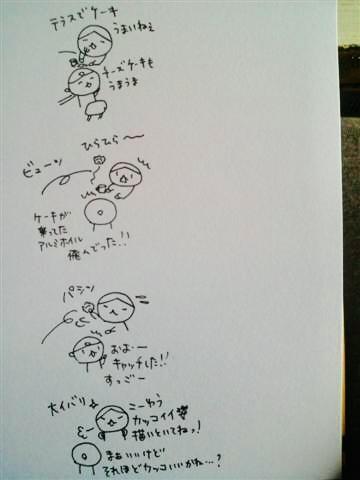 テラスでケーキ
うまいねぇ
チーズケーキも
うまうま
ひらひら〜〜
ビューン
ケーキが
乗ってた
アルミホイル
飛んでった!!
パシン
おぉー
キャッチした!!
すっごー
大イバリ
こーゆう
カッコイイ
描いといてねっ!
まぁいいけど
それほどカッコいいかね…?